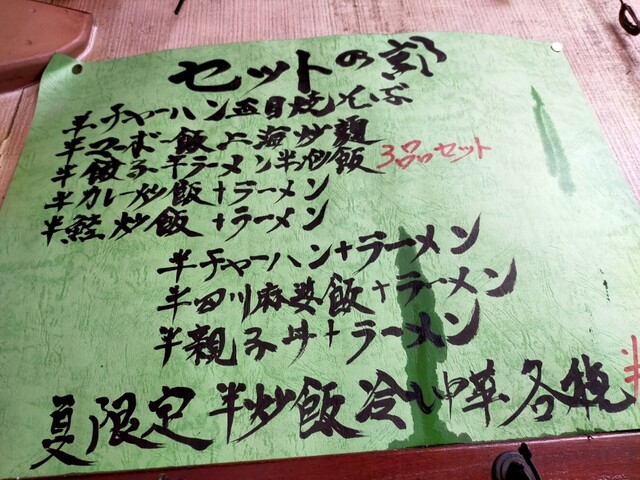 セットの部
半チャーハン五目焼そば
半マーボー飯上海炒麺
半餃子半ラーメン半炒飯 3品セット
半カレー炒飯+ラーメン
半鮭炒飯 +ラーメン
半チャーハン+ラーメン
半四川麻婆飯+ラーメン
半親子丼+ラーメン
夏限定 半炒飯 冷し中華各種 半